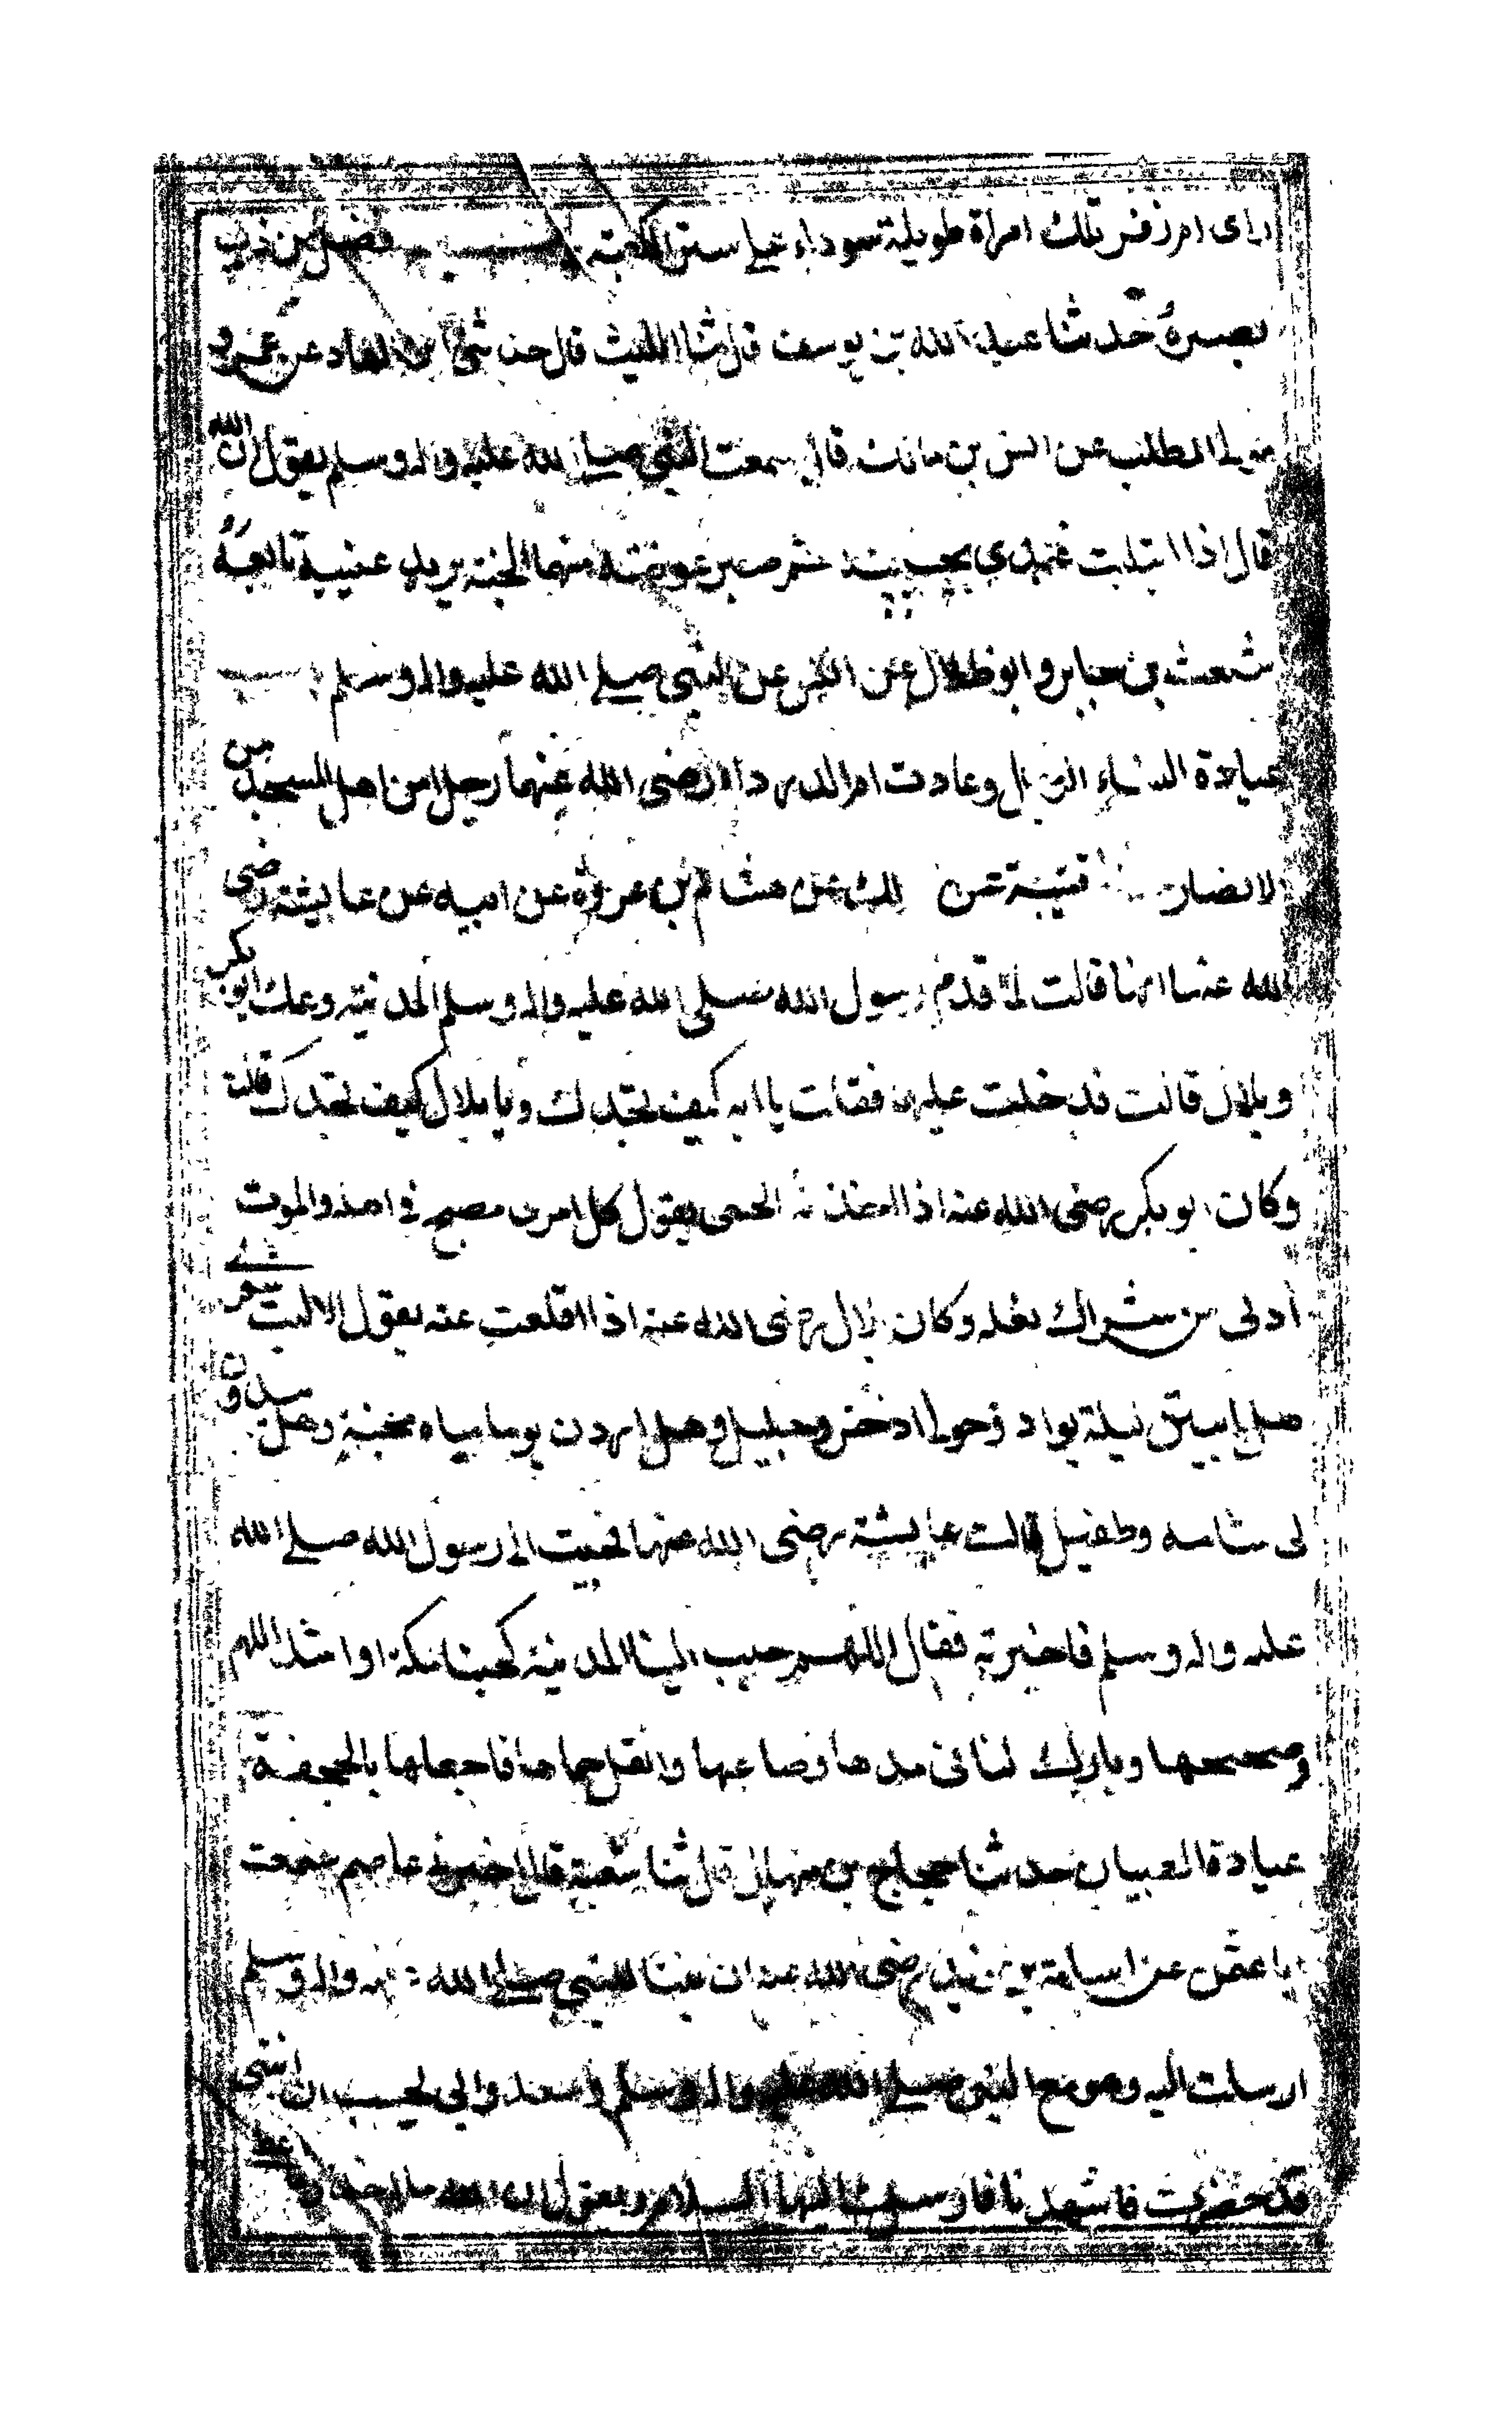 راى ام زفر تلك امراة طويلة سوداء على ستر الكعبة باب فضل من ذهب
بصره حدثنا عبد الله بن يوسف قال ثنا الليث قال حدثنى ابن الهاد عن عمرو
مولى المطلب عن انس بن مالك قال سمعت النبى صلى الله عليه واله وسلم يقول ان الله
قال اذا ابتليت عبدى بحبيبتيه ثم صبر عوضته منهما الجنة يريد عينيه تابعه
اشعث بن جابر وابو ظلال عن انس عن النبى صلى الله عليه واله وسلم باب
عيادة النساء الرجال وعادت ام الدرداء رضى الله عنها رجلا من اهل المسجد من
الانصار قتيبة عن مالك عن هشام بن عروة عن ابيه عن عايشة رضى
الله عنها انها قالت لما قدم رسول الله صلى الله عليه واله وسلم المدينة وعك ابو بكر
وبلال قالت فدخلت عليهما فقلت يا ابه كيف تجدك ويا بلال كيف تجدك قالت
وكان ابو بكر رضى الله عنه اذا اخذته الحمى يقول كل امرئ مصبح فى اهله والموت
أدنى من شراك نعله وكان بلال رضى الله عنه اذا اقلعت عنه يقول الا ليت شعرى
هل ابيتن ليلة بواد وحولى اذخر وجليل وهل اردن يوما مياه مجنة وهل يبدون
لى شامه وطفيل قالت عايشة رضى الله عنها فجيت الى رسول الله صلى الله
عليه واله وسلم فاخبرته فقال اللهم حبب الينا المدينة كحبنا مكة او اشد اللهم
وصححها وبارك لنا فى مدها وصاعها وانقل حماها فاجعلها بالجحفة
عيادة الصبيان حدثنا حجاج بن منهال قال ثنا شعبة قال اخبرنى عاصم سمعت
ابا عثمن عن اسامة بن زيد رضى الله عنه ان بنتا للنبى صلى الله عليه واله وسلم
ارسلت اليه وهو مع النبى صلى الله عليه واله وسلم وسعد وابى نحسب ان ابنتى
قد حضرت فاشهدنا فارسل اليها السلام ويقول ان الله ما اخذ وما اعطى